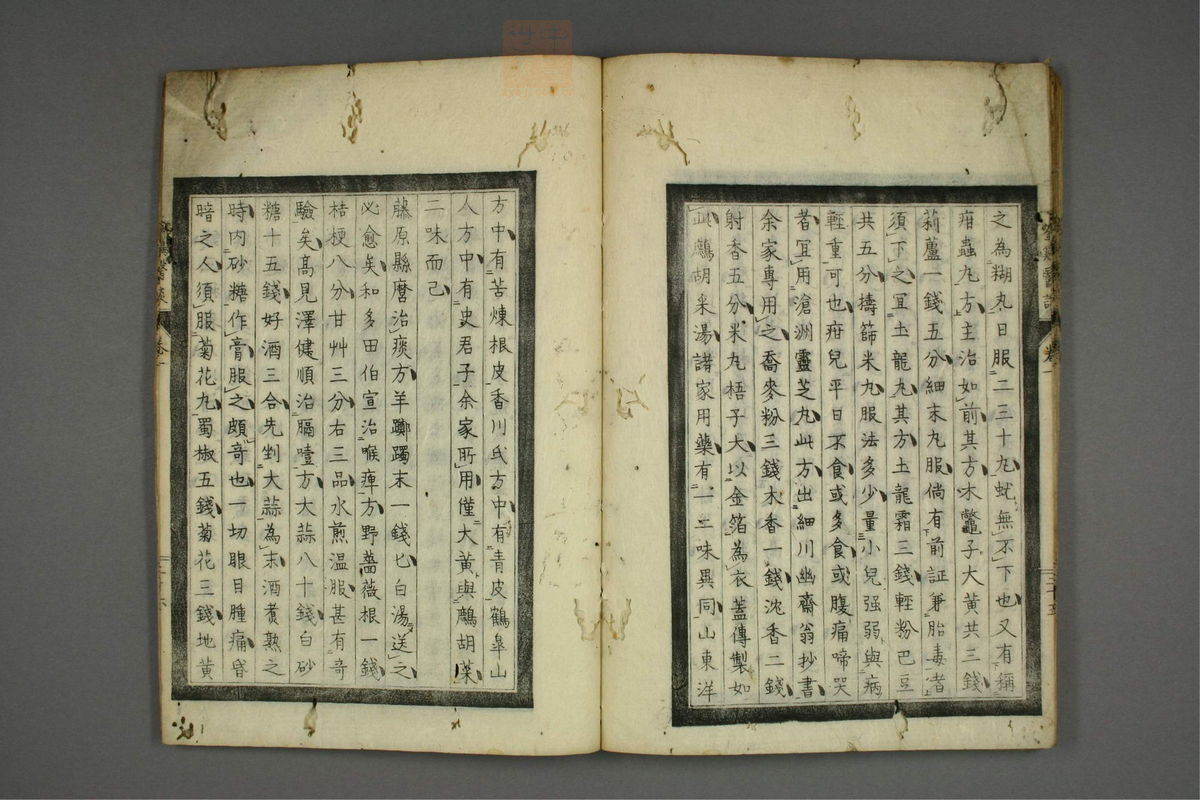 之為糊丸日服二三十丸蚘無不下也又有稱
疳蟲丸方主治如前其方木鼈子大黄共三錢
莉蘆一錢五分細末丸服倘有前証兼胎毒者
須下之冝土龍丸其方土龍霜三錢輕粉巴豆
共五分擣篩米丸服法多少量小兒强弱與病
輕重可也疳兒平日不食或多食或腹痛啼哭
者冝用滄洲靈芝丸此方出細川幽齋翁抄書
余家專用之喬麥粉三錢木香一錢沈香二錢
射香五分米丸梧子大以金箔為衣蓋傳製如
此鷓胡菜湯諸家用藥有一二味異同山東洋
方中有苦煉根皮香川氏方中有青皮鶴皐山
人方中有史君子余家所用僅大黄與鷓胡菜
二味而已
藤原縣麿治痰方羊躑躅末一錢匕白湯送之
必愈矣和多田伯宣治喉痺方野薔薇根一錢
桔梗八分甘艸三分右三品水煎温服甚有奇
驗矣高見澤健順治膈噎方大蒜八十錢白砂
糖十五錢好酒三合先剉大蒜為末酒煮熟之
時内砂糖作膏服之頗奇也一切眼目腫痛昏
暗之人須服菊花丸蜀椒五錢菊花三錢地黄